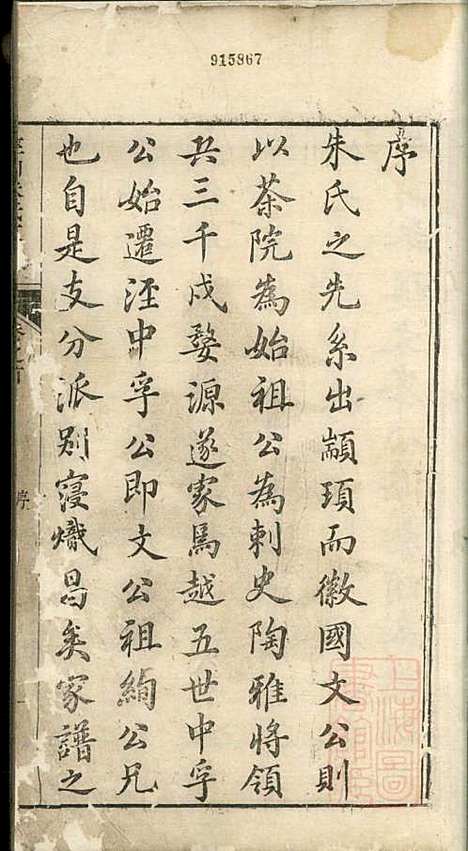 915867
序
朱氏之先系出顓頊而徽國文公則
以茶院為始祖公為刺史陶雅將領
兵三千戍婺源遂家焉越五世中孚
公始遷涇中孚公即文公祖絢公兄
也自是支分派別寖熾昌矣家譜之
序